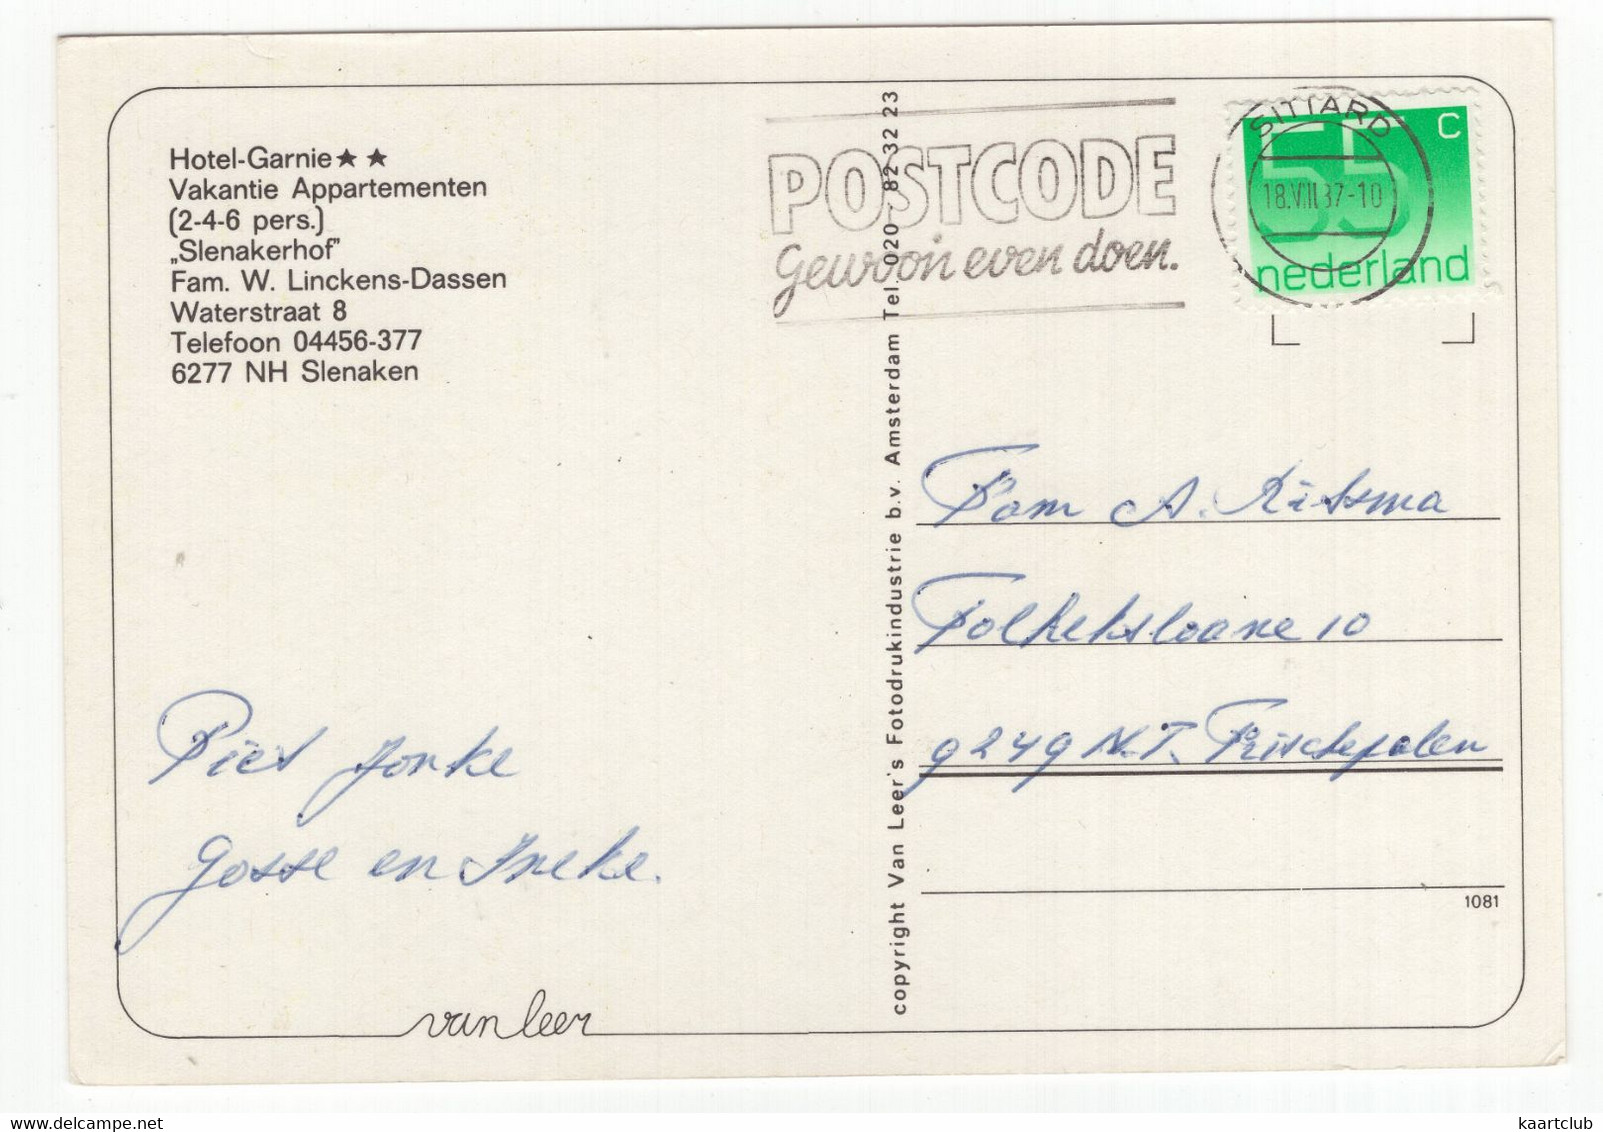 Hotel-Garnie★★
Vakantie Appartementen
(2-4-6 pers.)
„Slenakerhof"
Fam. W. Linckens-Dassen
Waterstraat 8
Telefoon 04456-377
6277 NH Slenaken
POSTCODE
gewoon even doen.
SITTARD
18.VIII.87-10
55 c
nederland
copyright Van Leer's Fotodrukindustrie b.v. Amsterdam Tel. 020 - 82 32 23
Fam A. Ritsma
Folkertsloane 10
9249 N.T. Frieschepalen
Piet Jonke
Gosse en Ineke.
1081
van leer
kaartclub